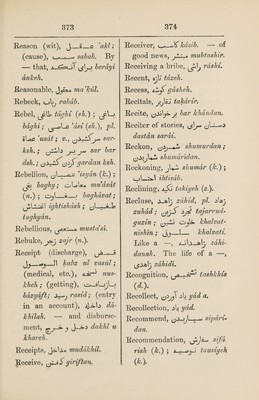 373
374
Reason (wit), عقل 'aql;
(cause), سبب sabab. By
— that, برای آنکه berāyi
ānkeh.
Reasonable, معقول ma'kūl.
Rebeck, رباب rabāb.
Rebel, طاغی tāghi (sh.); باغی
bāghi; عاصی 'āsi (sh.), pl.
عصاة 'usāt; سرکش sar-
ksh.; سر بر داشتن sar bar
dsh.; گردن کشیدن gardan ksh.
Rebellion, عصیان 'isyān (k.);
بغی baghy; معادات ma'ādāt
(n.); بغاوت baghāvat;
اغتشاش ightishāsh; طغیان
tughyān.
Rebellious, مستعصی musta'si.
Rebuke, زجر zajr (n.).
Receipt (discharge), قبض
الوصول kabz ul vusūl;
(medical, etc.), نسخه nus-
kheh; (getting), بازیافت
bāzyāft; رسید rasid; (entry
in an account), داخله dā-
khilah. — and disburse-
ment, دخل و خرج dakhl u
kharch.
Receipts, مداخل mudākhil.
Receive, گرفتن giriftan.
Receiver, کاسب kāsib. — of
good news, مبشر mubtashir.
Receiving a bribe, راشی rāshi.
Recent, تازه tāzeh.
Recess, گوشه gūsheh.
Recitals, تقاریر takārir.
Recite, بر خواندن bar khāndan.
Reciter of stories, داستان سرای
dastān sarāi.
Reckon, شمردن shumurdan;
شماریدن shumāridan.
Reckoning, شمار shumār (k.);
احتساب ihtisāb.
Reclining, تکیه takiyeh (z.).
Recluse, زاهد zāhid, pl. زهاد
zuhād; تجرد گزین tajarrud-
guzin; خلوت نشین khalvat-
nishin; خلوتی khalvati.
Like a —, زاهدانه zāhi-
dānah. The life of a —,
زاهدی zāhidi.
Recognition, تشخیص tashkhis
(d.).
Recollect, یاد آوردن yād a.
Recollection, یاد yād.
Recommend, سپاردن sipāri-
dan.
Recommendation, سفارش sifā
rish (k.); توصیه tausiyeh
(k.).